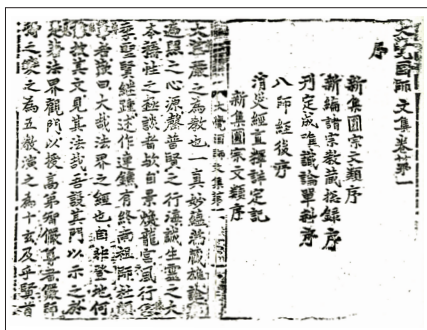 大覺國師文集卷第一
序
新集圓宗文類序
新編諸宗教藏総錄序
刊定成唯識論單科序
八師經後序
消災經直釋詳定記
新集圓宗文類序
大覺國師文集第一
大華嚴之為教也一真妙蘊滿藏雄詮
遍照之心源罄普賢之行海誠生靈之大
本稱性之極談者歟自景爍龍宮風行忍
聖賢継踵述作連鑣有終南祖師杜順
者歎曰大哉法界之經也自非登地何
披其文見其法哉吾設其門以示之於
是著法界觀門以授高弟智儼尊者儼師
得之變之為五教演之為十玄及乎賢首